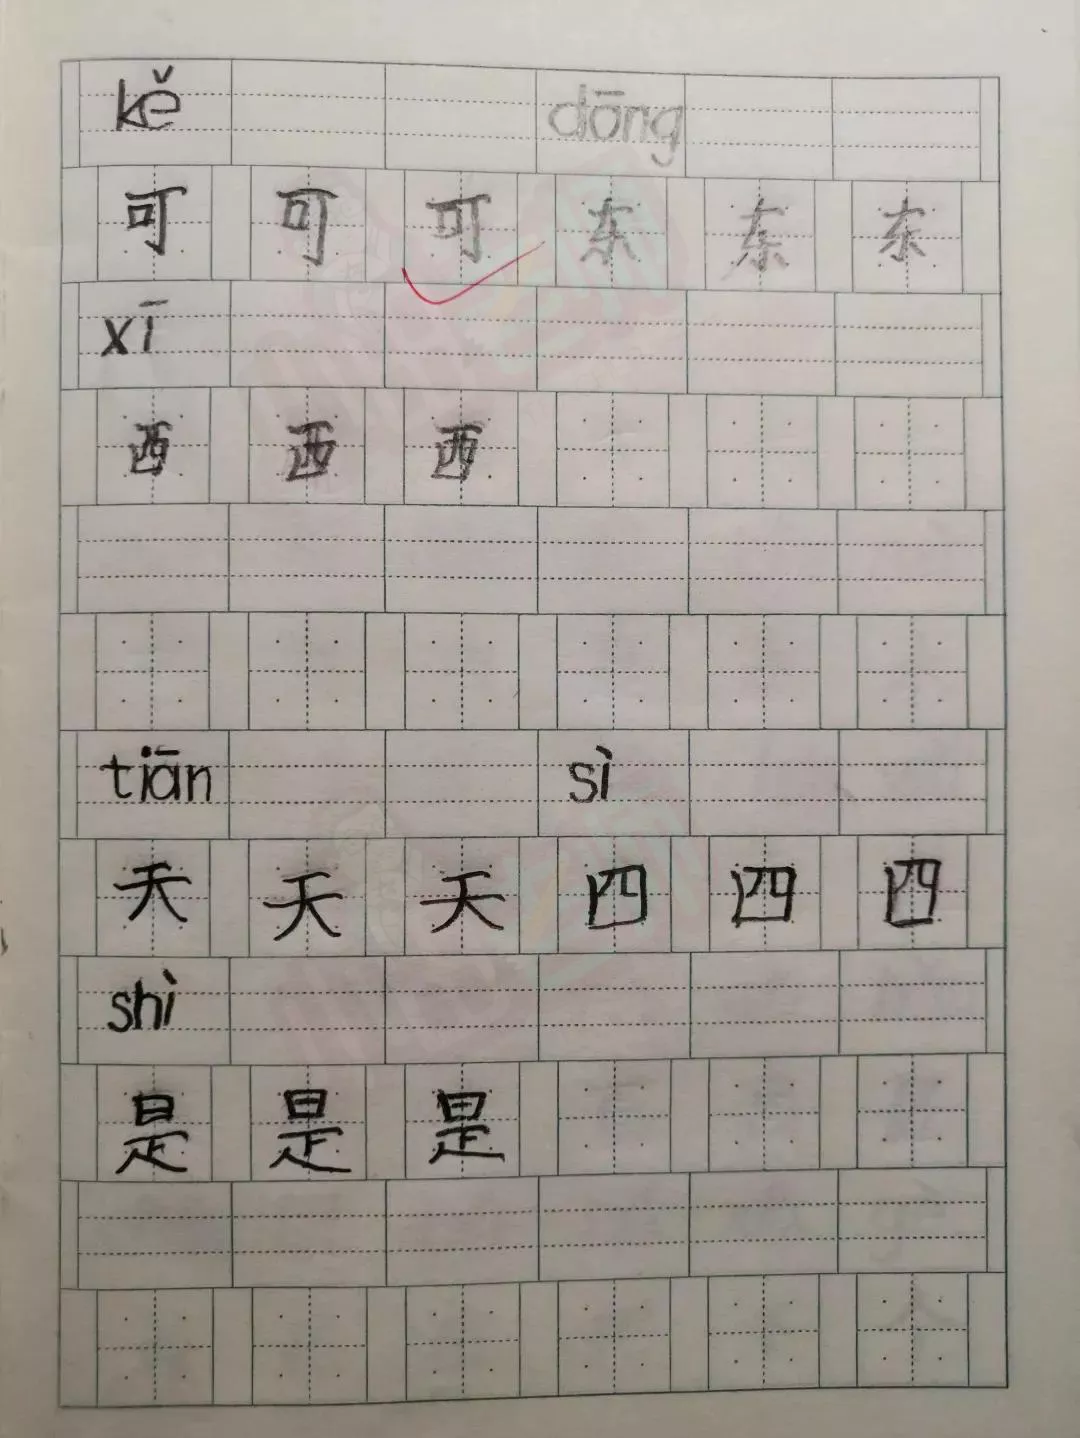 kě dōng
可 可 可 东 东 东
xī
西 西 西
tiān sì
天 天 天 四 四 四
shì
是 是 是